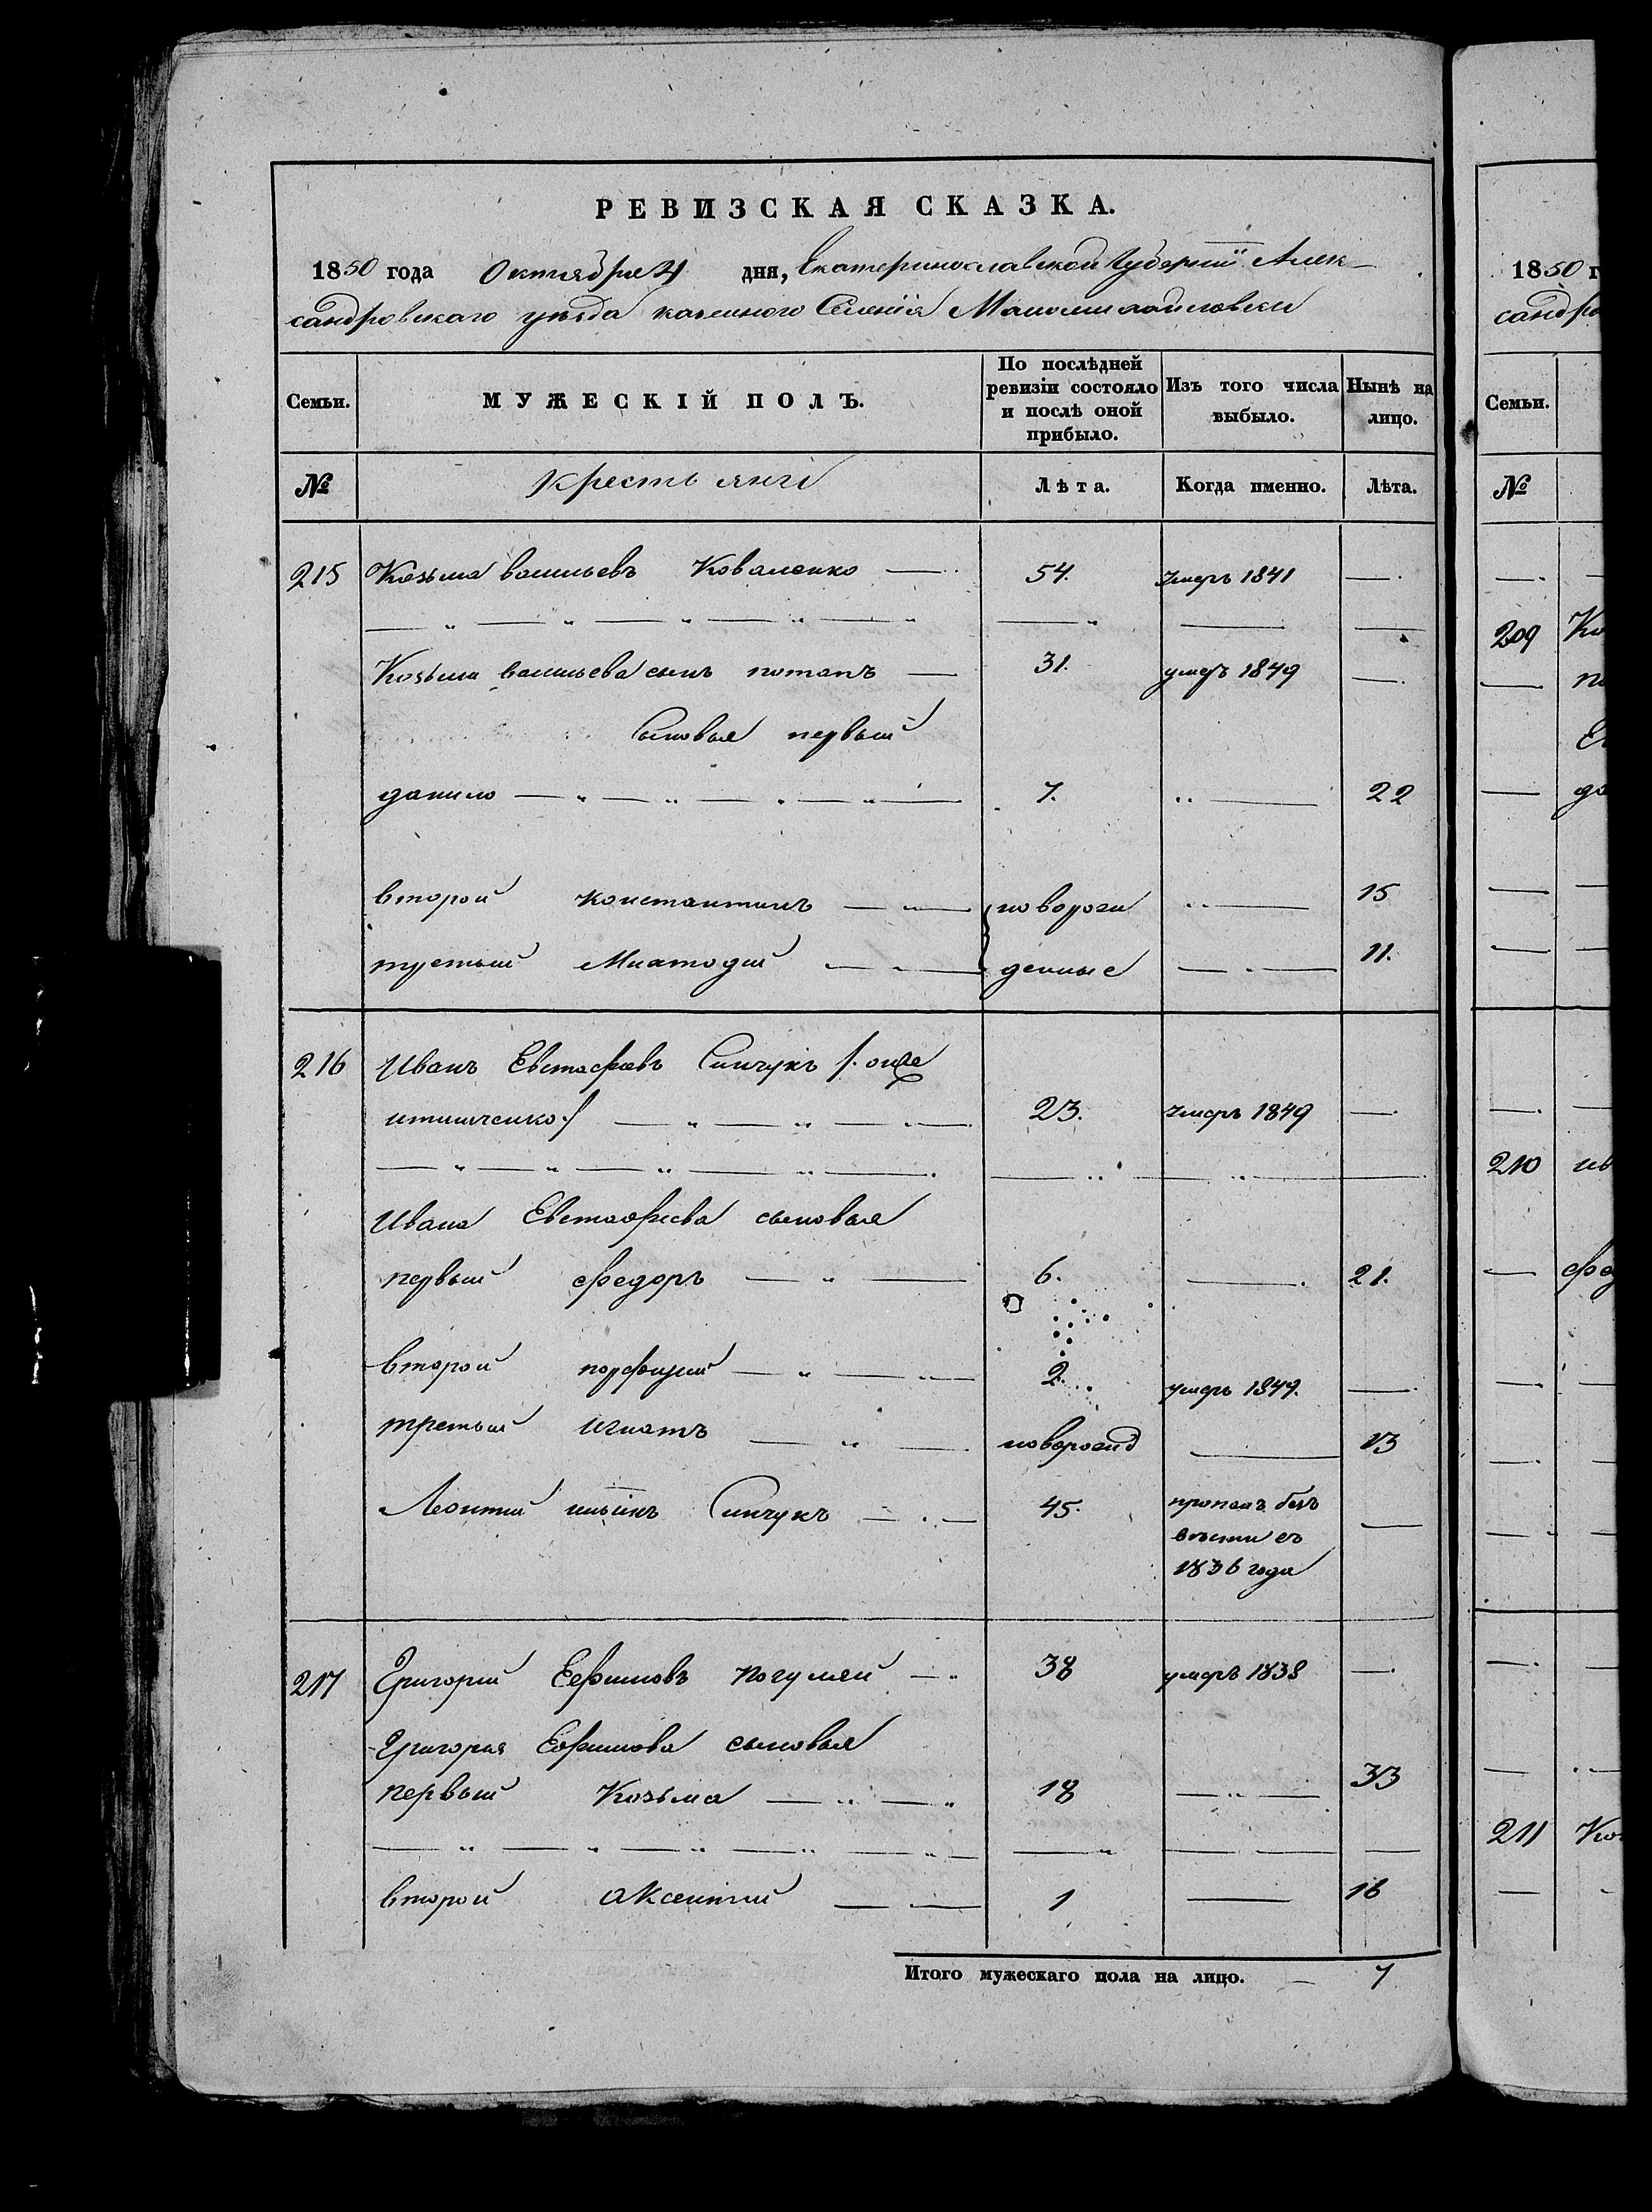 РЕВИЗСКАЯ СКАЗКА.
1850 года Октября 4 дня, Екатеринославской Губернии Алек-
сандровскаго уѣзда казенного Селенія Маломихайловки
Семьи. МУЖЕСКІЙ ПОЛЪ. По послѣдней ревизіи состояло и послѣ оной прибыло. Изъ того числа выбыло. Нынѣ на лицо.
№ крестьяне Лѣта. Когда именно. Лѣта.
215 Козьма васильевъ Коваленко — 54. умеръ 1841 —
Козьмы васильева сынъ потапъ — 31. умеръ 1849 —
Сыновья первый
данило — 7. — 22
второй константинъ — новорож — 15
третьий — денные — 11.
216 Иванъ Евстафіевъ Синчукъ /. онже
23. умеръ 1849 —
Ивана Евстафіева сыновья
первый федоръ — 6. — 21.
второй порфирий — 2. умеръ 1849. —
третьий игнатъ — новорожд — 13
Леонтий ильинъ Синчукъ — 45. пропалъ безъ
вѣсти съ
1836 года
217 Григорий Ефимовъ погуляй — 38 умеръ 1838 —
Григория Ефимова сыновья
первый Козьма — 18 — 33
второй Аксентий — 1 — 16
Итого мужескаго пола на лицо. — 7
1850 г
сандро
Семьи.
№
209 Ко
210 ив
фед
211 Ко